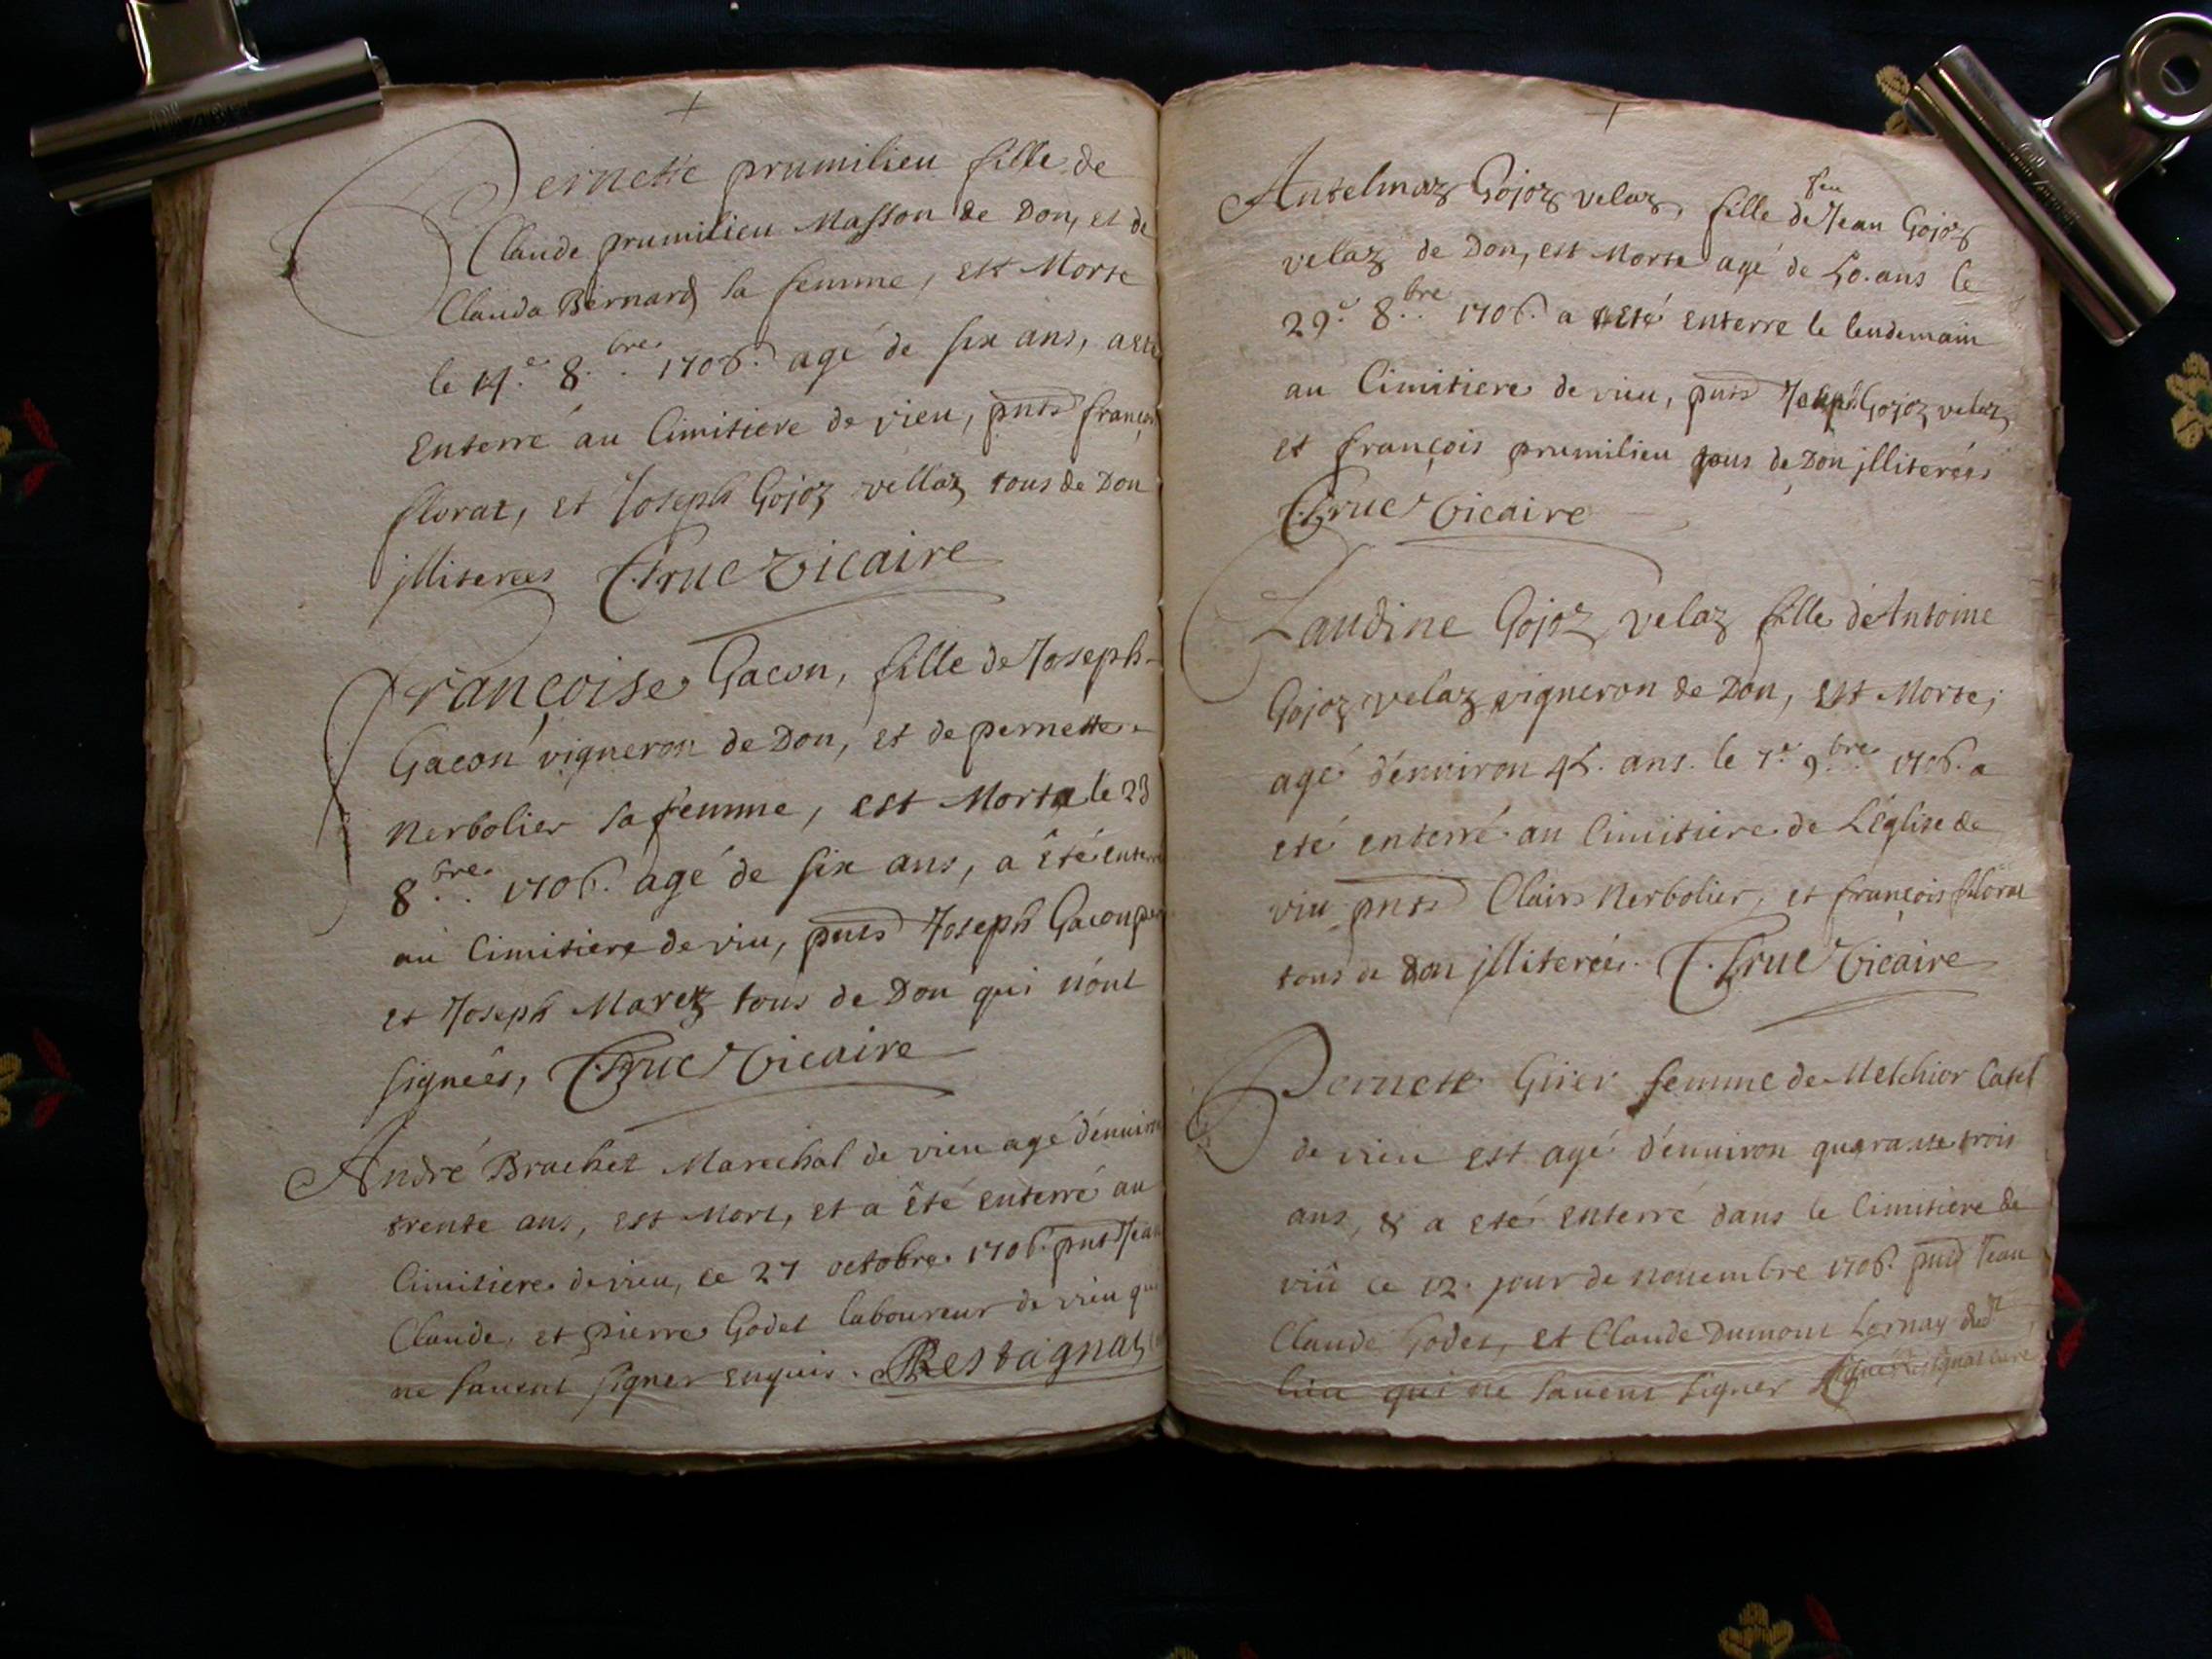 Pernette prumilieu fille de
Claude prumilieu Masson de Don, et de
Clauda Bernard sa femme, est Morte
le 14.e 8.bre 1706. agé de six ans, a eté
Enterré au Cimitiere de vieu, pnts françois
florat, et Joseph Gojoz vellaz tous de Don
jlliterees C. Truc Vicaire
françoise Gacon, fille de Joseph
Gacon vigneron de Don, et de pernette
Nerbolier sa femme, est Morte le 23
8.bre 1706. agé de six ans, a été enterré
au Cimitiere de viu, pnts Joseph Gacon
et Joseph Marez tous de Don qui n'ont
signées, C. Truc Vicaire
André Brachet Marechal de vieu agé d'enuiron
trente ans, est Mort, et a été enterré au
Cimitiere de vieu, ce 27 octobre 1706. pnts Jean
Claude, et pierre Godet laboureur de vieu qui
ne sauent signer enquis. Restaignat
Antelmaz Gojoz velaz, fille de feu Jean Gojoz
velaz de Don, est Morte agé de 50. ans le
29.e 8.bre 1706. a eté enterre le lendemain
au Cimitiere de vieu, pnts Joseph Gojoz velaz
et françois prumilieu tous de Don jlliterées
C. Truc Vicaire
Claudine Gojoz velaz fille de Antoine
Gojoz velaz vigneron de Don, est Morte,
agé d'enuiron 45. ans. le 7.e 9.bre 1706. a
eté enterré au Cimitiere de L'Eglise de
viu pnts Clair Nerbolier, et françois florat
tous de Don jlliterées. C. Truc Vicaire
Pernette Girer femme de Melchior Catel
de vieu est agé d'enuiron quarante trois
ans, & a eté enterré dans le Cimitière de
viû ce 12. jour de nouembre 1706. pnts Jean
Claude Godet, et Claude Dumont Lornay dudt
lieu qui ne sauent signer